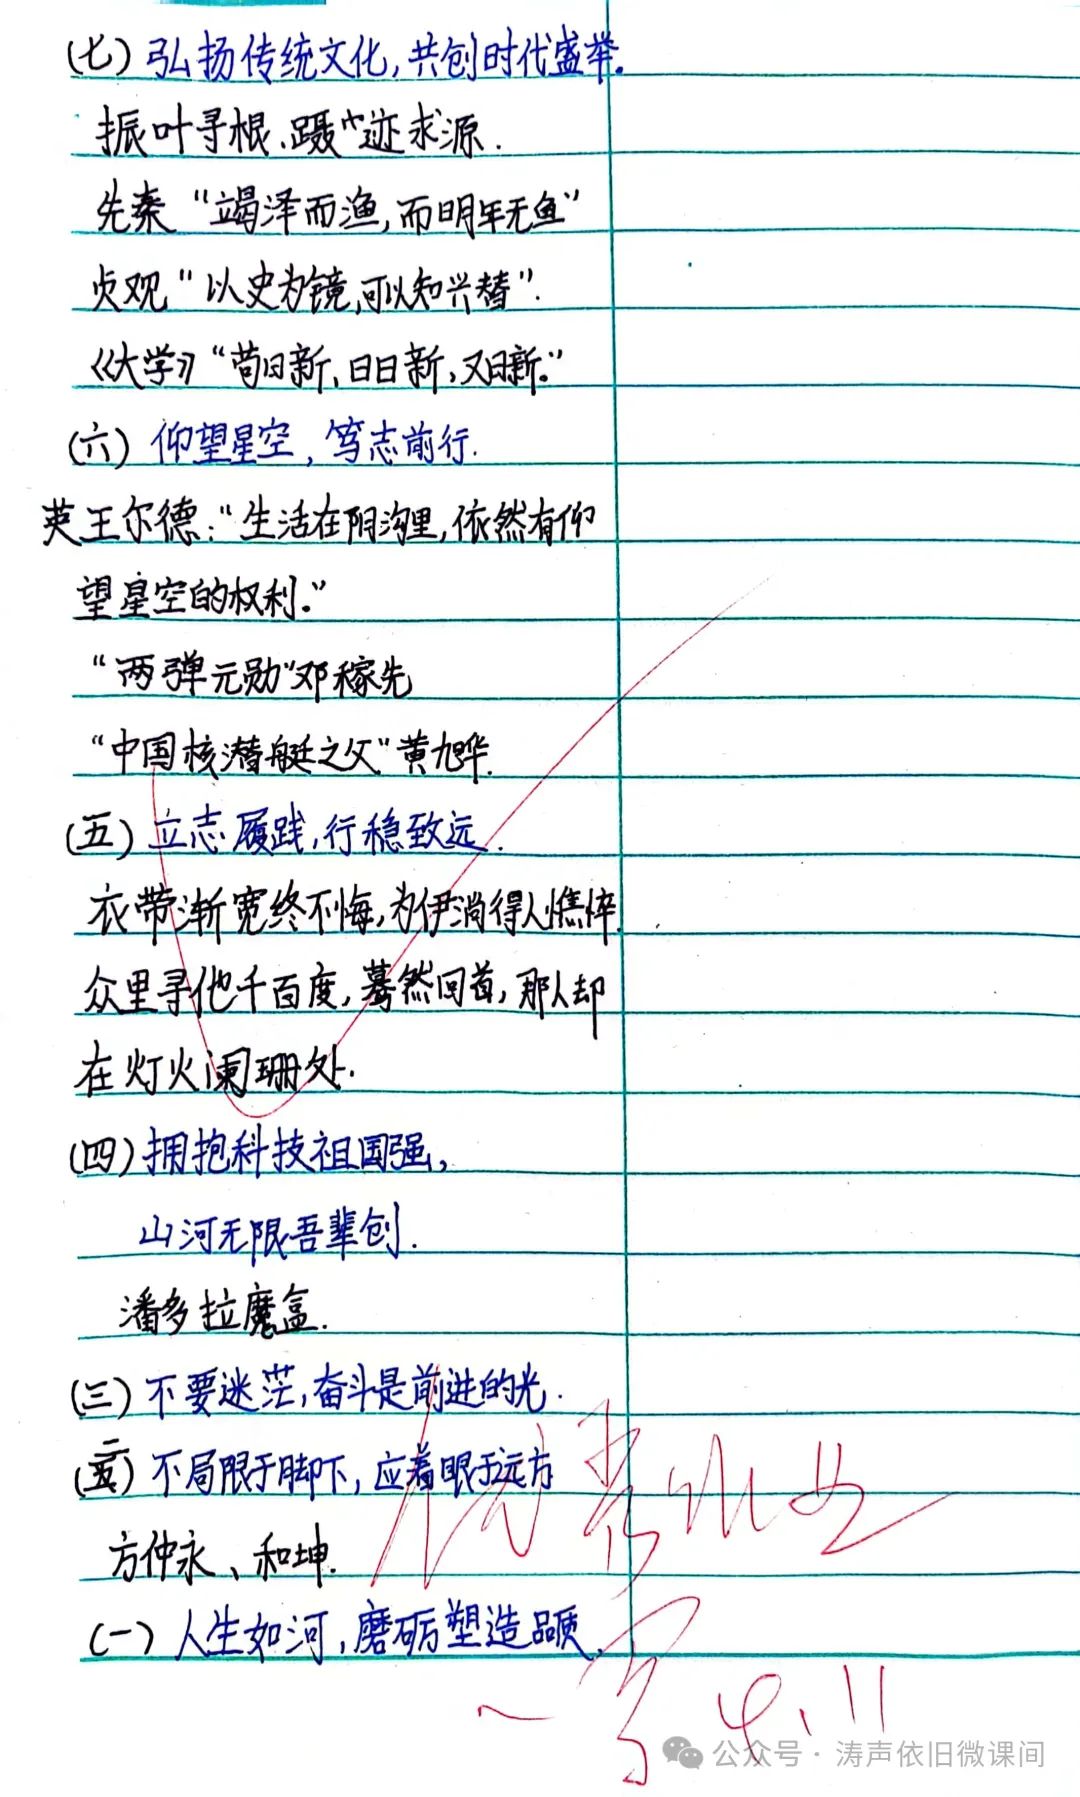 (七) 弘扬传统文化,共创时代盛举.
振叶寻根、蹑迹求源.
先秦“竭泽而渔,而明年无鱼”
贞观“以史为镜,可以知兴替”.
《大学》“苟日新、日日新,又日新.”
(六) 仰望星空,笃志前行.
英王尔德:“生活在阴沟里,依然有仰
望星空的权利.”
“两弹元勋”邓稼先
“中国核潜艇之父”黄旭华.
(五) 立志履践,行稳致远.
衣带渐宽终不悔,为伊消得人憔悴.
众里寻他千百度,蓦然回首,那人却
在灯火阑珊处.
(四) 拥抱科技祖国强,
山河无限吾辈创.
潘多拉魔盒.
(三) 不要迷茫,奋斗是前进的光.
(二) 不局限于脚下,应着眼于远方
方仲永、和坤.
(一) 人生如河,磨砺塑造品质.
优秀作业
公众号·涛声依旧微课间